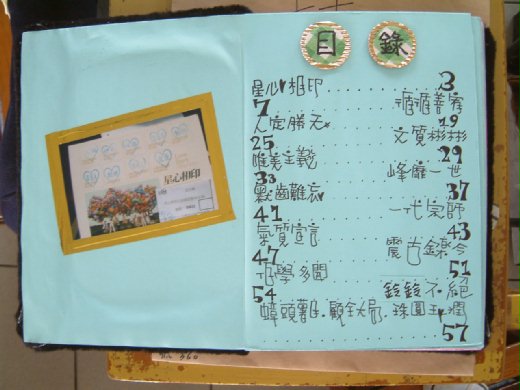 目 錄
星心相印 3
7 循循善誘
人定勝天 19
25 文質彬彬
唯美主義 29
33 峰靡一世
齒難忘 37
41 一代宗師
氣質宣言 43
47 震古鑠今
學多聞 51
54 鈴鈴不絕
顧全大局.珠圓玉潤
57
星心相印